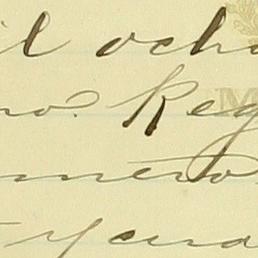 il ocho
no. Reg
mero
y cua